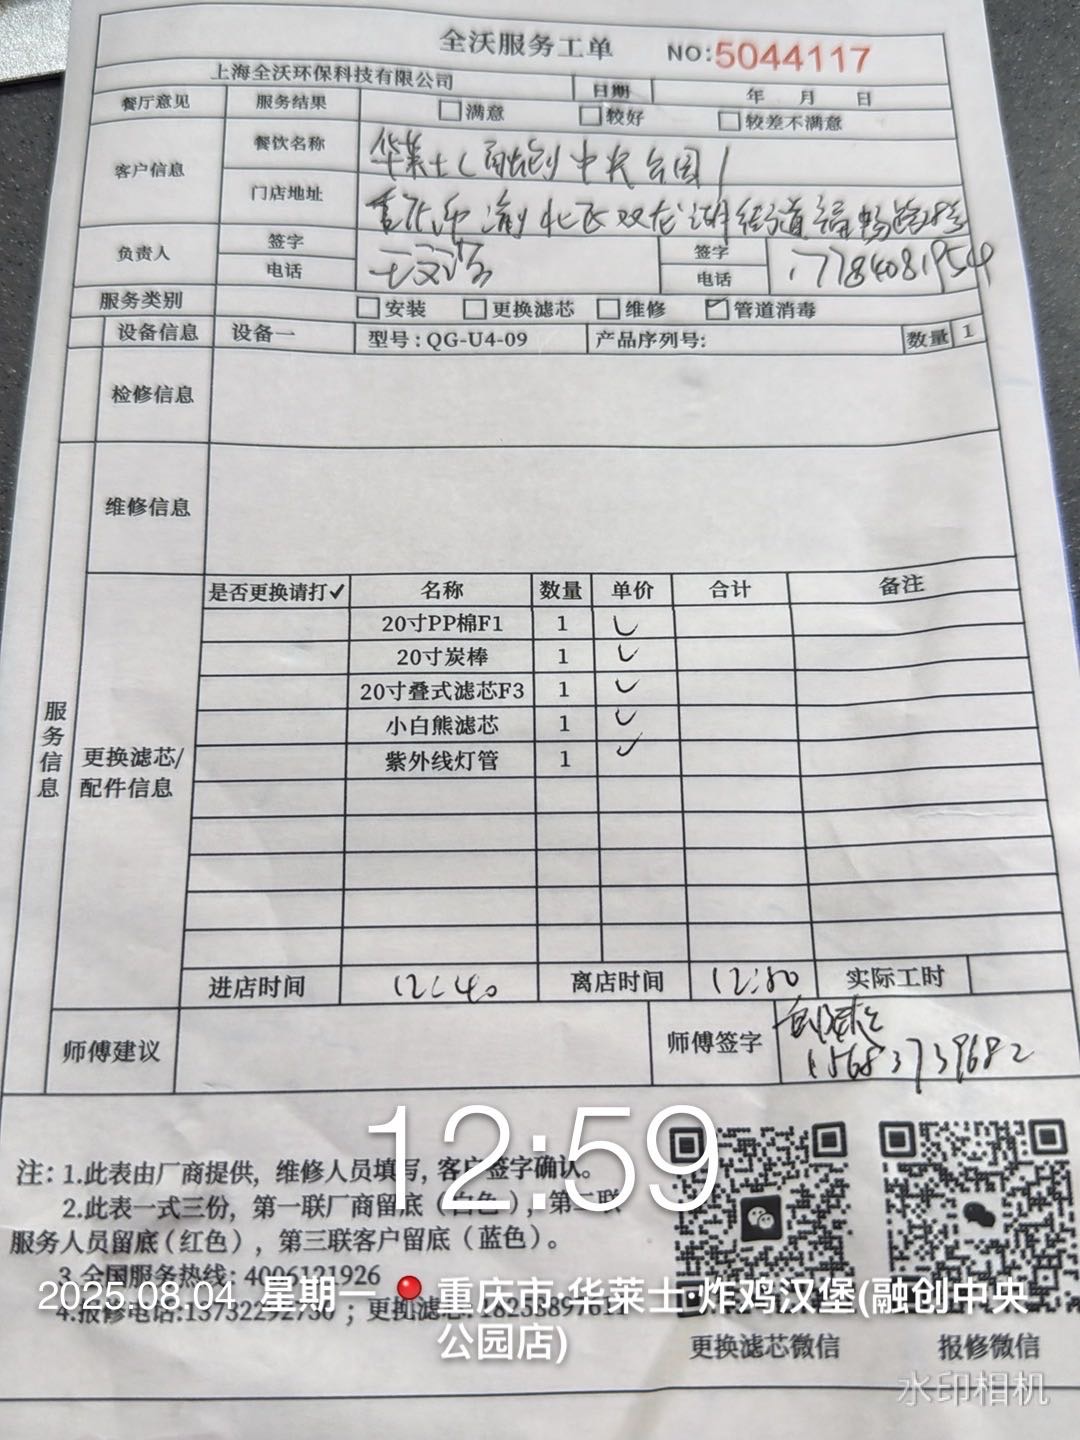 全沃服务工单 NO:5044117
上海全沃环保科技有限公司 日期 年 月 日
餐厅意见 服务结果 □满意 □较好 □较差不满意
客户信息 餐饮名称 华莱士(融创中央公园)
门店地址 重庆市渝北区双龙湖街道福畅路28号
负责人 签字 签字
电话 电话 17784081954
服务类别 □安装 □更换滤芯 □维修 ☑管道消毒
设备信息 设备一 型号:QG-U4-09 产品序列号: 数量 1
检修信息
维修信息
服务信息
更换滤芯/配件信息
是否更换请打✓ 名称 数量 单价 合计 备注
20寸PP棉F1 1 ✓
20寸炭棒 1 ✓
20寸叠式滤芯F3 1 ✓
小白熊滤芯 1 ✓
紫外线灯管 1 ✓
进店时间 12:40 离店时间 12:50 实际工时
师傅建议 师傅签字
15683739682
12:59
注:1.此表由厂商提供,维修人员填写,客户签字确认。
2.此表一式三份,第一联厂商留底(白色),第二联
服务人员留底(红色),第三联客户留底(蓝色)。
3.全国服务热线:4006121926
4.报修电话:13732292730;更换滤芯:
2025.08.04 星期一 重庆市·华莱士·炸鸡汉堡(融创中央
公园店)
更换滤芯微信 报修微信
水印相机